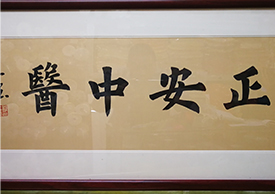 正安中醫